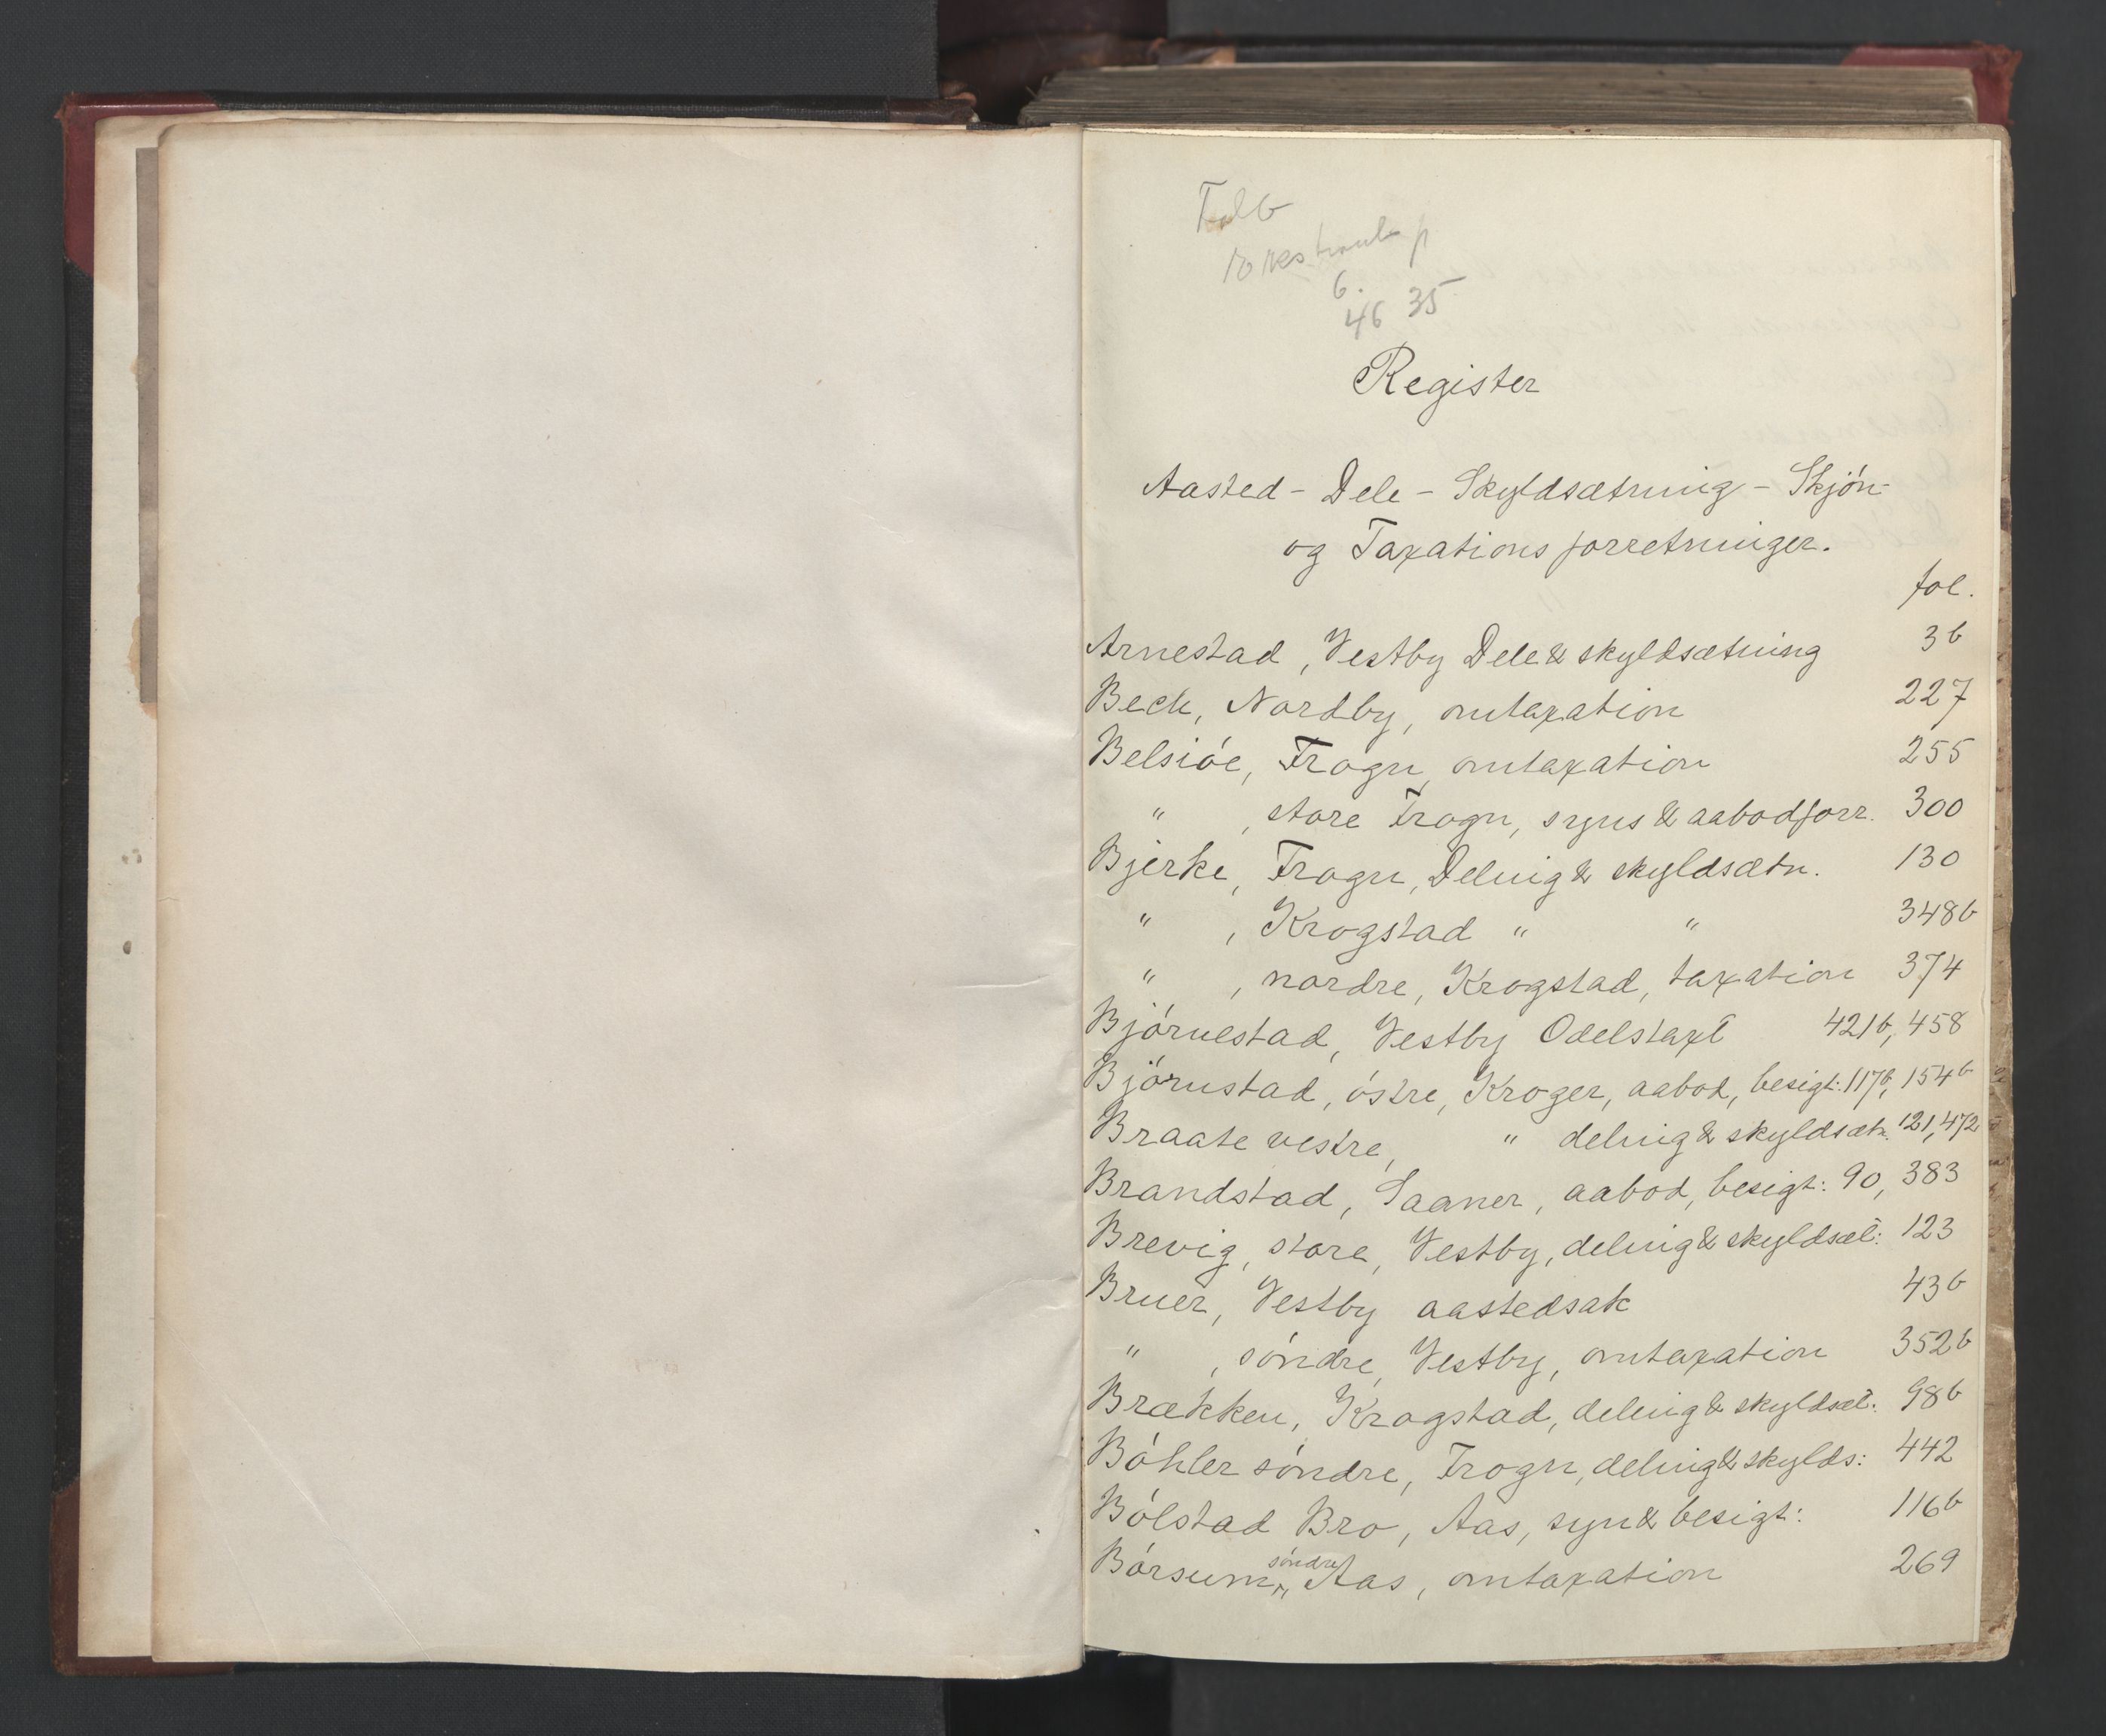 6.
46 35
Register
Aasted - Dele - Skyldsætning - Skjön-
og Taxationsforretninger.
fol.
Arnestad, Vestby Dele & skyldsætning 3b
Bech, Nordby, omtaxation 227
Belsiöe, Frogn, omtaxation 255
" , store Frogn, syns & aabodforr. 300
Bjerke, Frogn, Deling & skyldsætn. 130
" , Krogstad " " 348b
" , nordre, Krogstad, taxation 374
Björnestad, Vestby Odelstaxt 421b, 458
Björnstad, östre, Kroger, aabod, besigt: 117b, 154b
Braate vestre, " deling & skyldsætn. 121, 472
Brandstad, Saaner, aabod, besigt: 90, 383
Brevig, store, Vestby, deling & skyldsæt: 123
Bruer, Vestby aastedsak 43b
" , söndre, Vestby, omtaxation 352b
Brækken, Krogstad, deling & skyldsæt: 98b
Böhler söndre, Frogn, deling & skylds: 442
Bölstad Bro, Aas, syn & besigt: 116b
Börsum, söndre, Aas, omtaxation 269